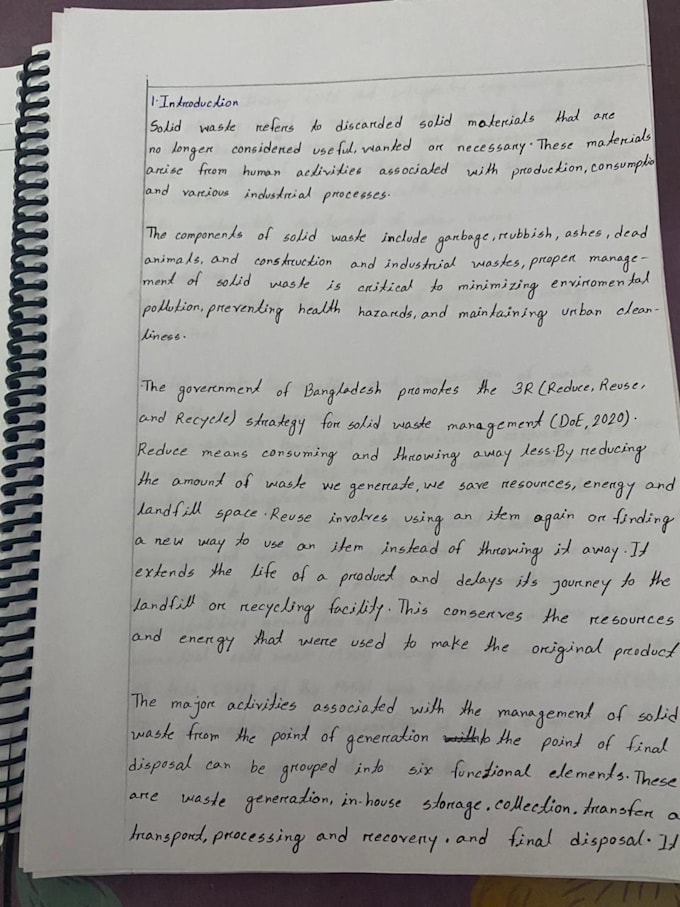 1. Introduction
Solid waste refers to discarded solid materials that are
no longer considered useful, wanted or necessary. These materials
arise from human activities associated with production, consumptio
and various industrial processes.
The components of solid waste include garbage, rubbish, ashes, dead
animals, and construction and industrial wastes, proper manage-
ment of solid waste is critical to minimizing enviromental
pollution, preventing health hazards, and maintaining urban clean-
liness.
The government of Bangladesh promotes the 3R (Reduce, Reuse,
and Recycle) strategy for solid waste management (DoE, 2020).
Reduce means consuming and throwing away less. By reducing
the amount of waste we generate, we save resources, energy and
landfill space. Reuse involves using an item again or finding
a new way to use an item instead of throwing it away. It
extends the life of a product and delays its journey to the
landfill or recycling facility. This conserves the resources
and energy that were used to make the original product
The major activities associated with the management of solid
waste from the point of generation to the point of final
disposal can be grouped into six functional elements. These
are waste generation, in-house storage, collection, transfer a
transport, processing and recovery, and final disposal. It